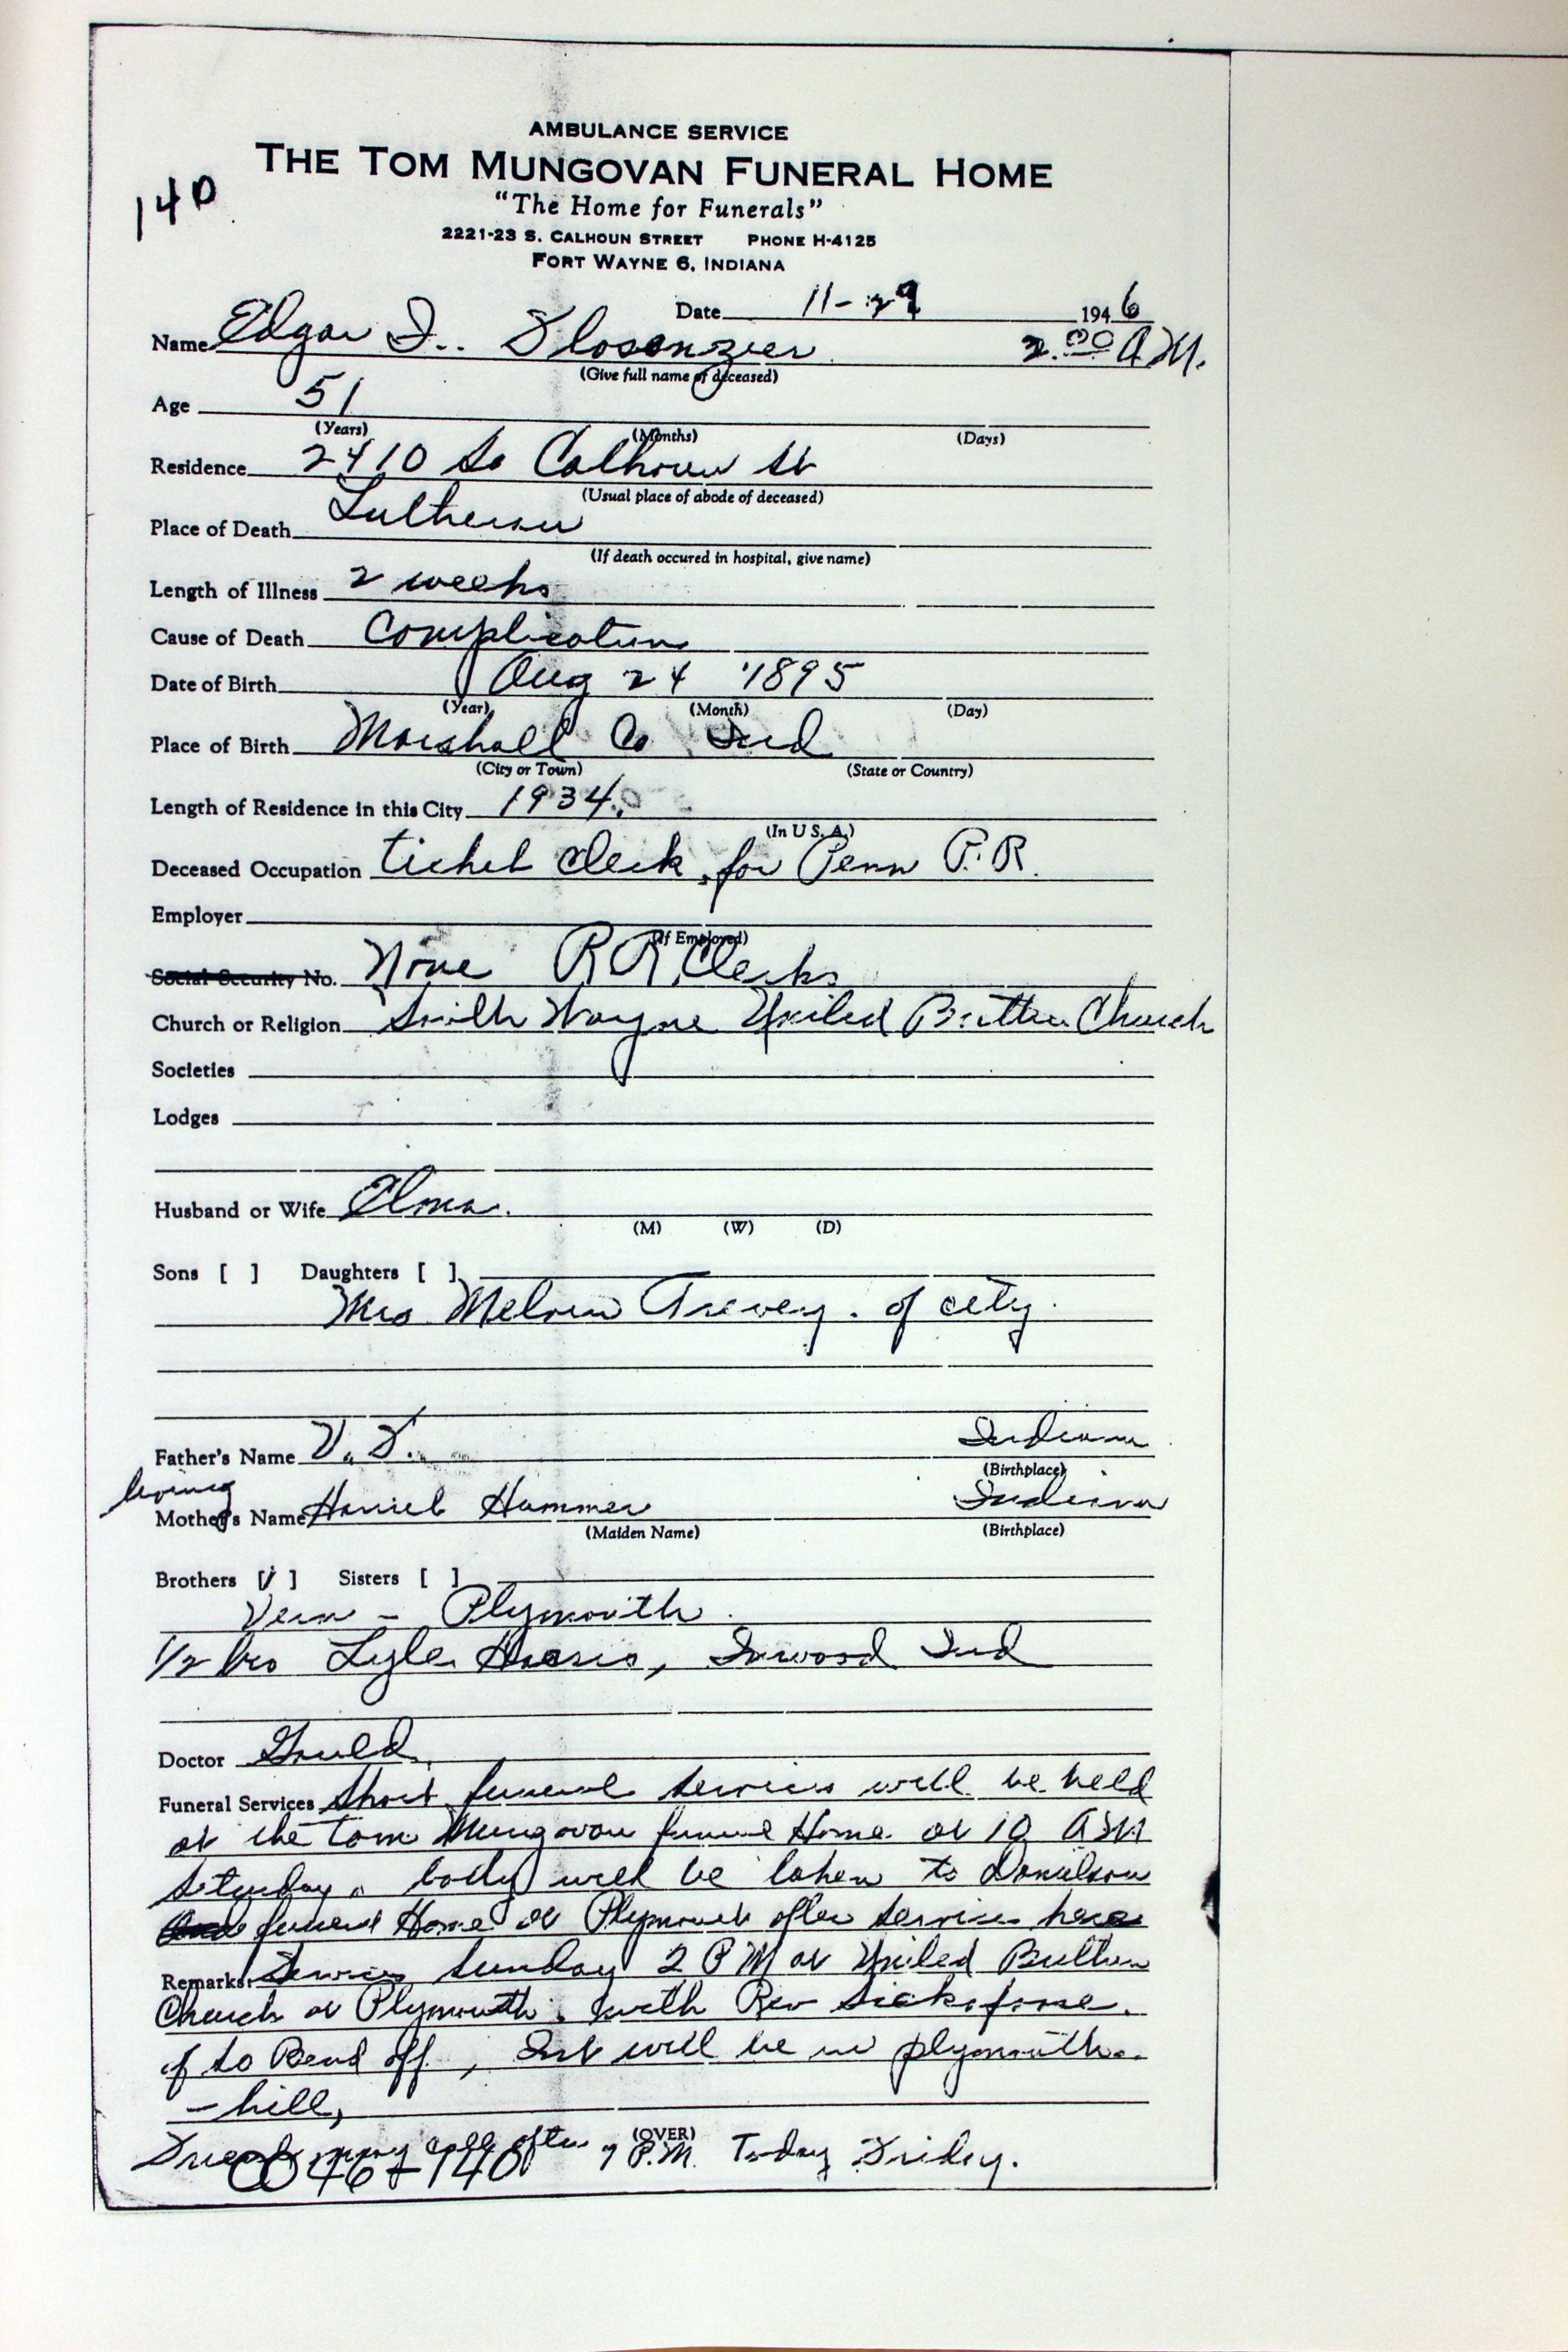 AMBULANCE SERVICE
THE TOM MUNGOVAN FUNERAL HOME
140
"The Home for Funerals"
2221-23 S. CALHOUN STREET PHONE H-4125
FORT WAYNE 6, INDIANA
Date 11-29 1946
Name Edgar I. Slosenzier 2:00 A.M.
(Give full name of deceased)
Age 51
(Years) (Months) (Days)
Residence 2410 So Calhoun St
(Usual place of abode of deceased)
Place of Death Lutheran
(If death occured in hospital, give name)
Length of Illness 2 weeks
Cause of Death Complications
Date of Birth Aug 24 1895
(Year) (Month) (Day)
Place of Birth Marshall Co Ind
(City or Town) (State or Country)
Length of Residence in this City 1934.
(In U.S.A.)
Deceased Occupation ticket clerk for Penn R.R.
Employer
(If Employed)
Social Security No. None RR Clerks
Church or Religion South Wayne United Brethren Church
Societies
Lodges
Husband or Wife Elma.
(M) (W) (D)
Sons [ ] Daughters [ ]
Mrs Melvin . of city.
Father's Name V. S. Indiana
(Birthplace)
living
Mother's Name Harriet Hummer Indiana
(Maiden Name) (Birthplace)
Brothers [1] Sisters [ ]
Vern - Plymouth.
1/2 bro Lyle Harris, Inwood Ind
Doctor Gould.
Funeral Services Short funeral services will be held
at the Tom Mungovan funeral Home at 10 A.M
Saturday. body will be taken to Danielson
funeral Home at Plymouth after services here
Remarks: Services Sunday 2 P M at United Brethren
Church at Plymouth, with Rev
of So Bend off, Int will be in plymouth
- hill,
(OVER)
Friends may call after 7 P.M. Today Friday.
0046-140